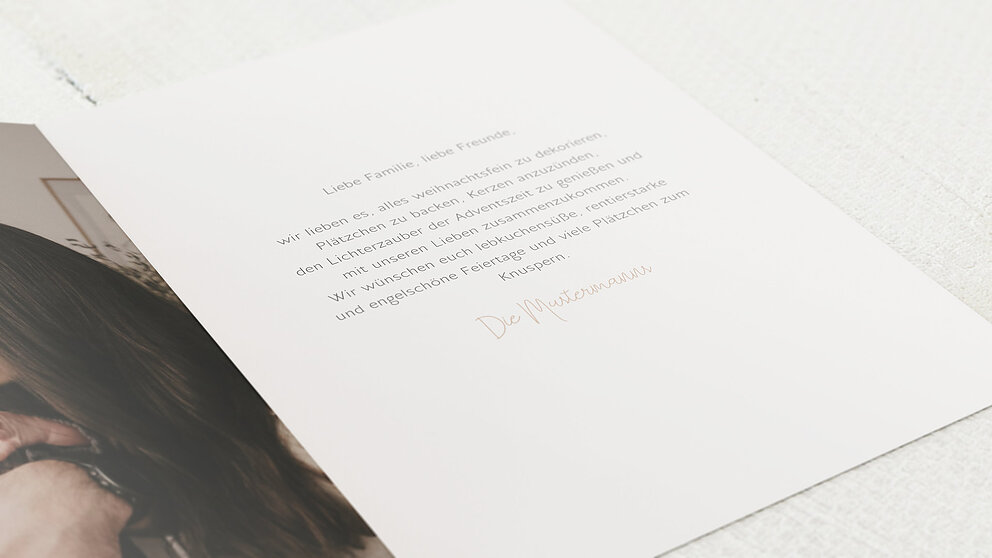 Liebe Familie, liebe Freunde,
wir lieben es, alles weihnachtsfein zu dekorieren,
Plätzchen zu backen, Kerzen anzuzünden,
den Lichterzauber der Adventszeit zu genießen und
mit unseren Lieben zusammenzukommen.
Wir wünschen euch lebkuchensüße, rentierstarke
und engelschöne Feiertage und viele Plätzchen zum
Knuspern.
Die Mustermanns